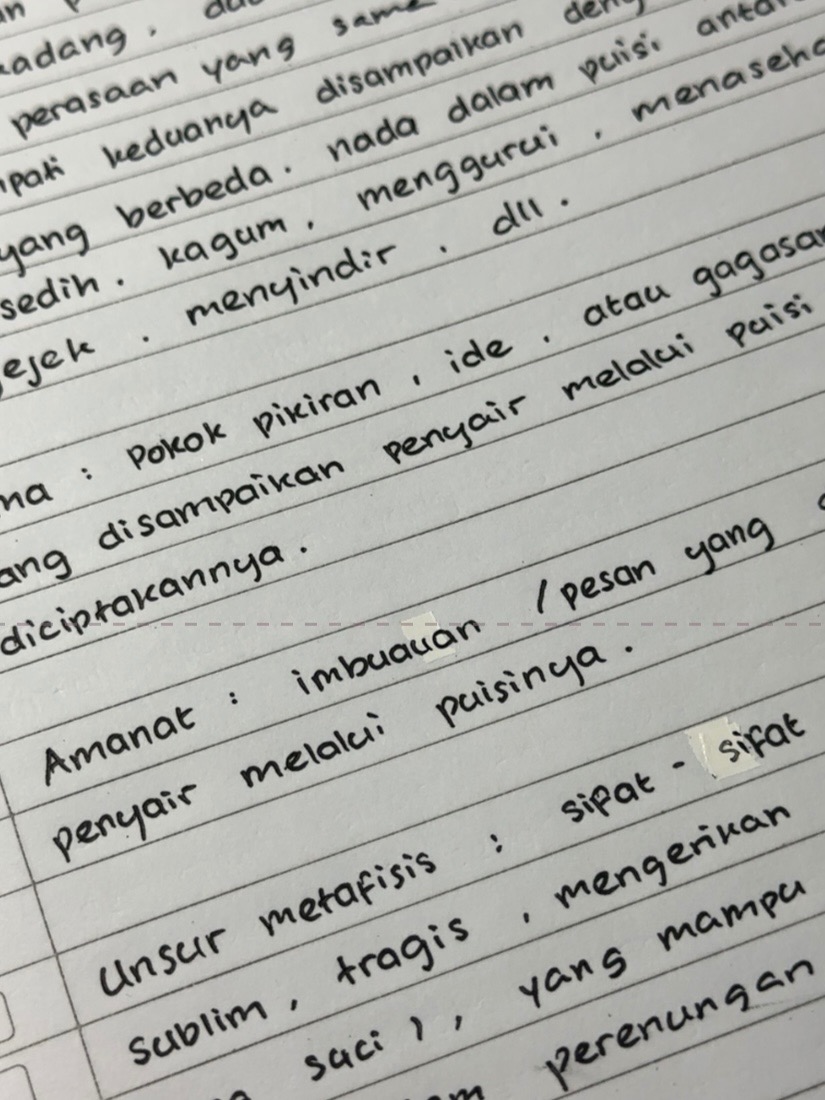 kadang,
perasaan yang same
keduanya disampaikan
yang berbeda. nada dalam puisi
sedih. kagum, menggurui, menaseha
ejek. menyindir. dll.
: Pokok pikiran, ide, atau gagasan
disampaikan penyair melalui puisi
diciptakannya.
Amanat : imbuauan / pesan yang
penyair melalui puisinya.
Unsur metafisis : sipat - sifat
sublim, tragis, mengerikan
suci), yang mampu
perenungan